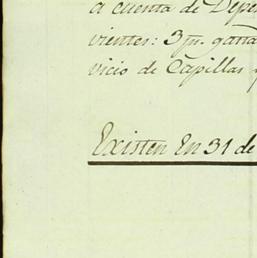 a cuenta de Depen
vientes: 3 pr. gana
vicio de Capillas y
Existen En 31 de